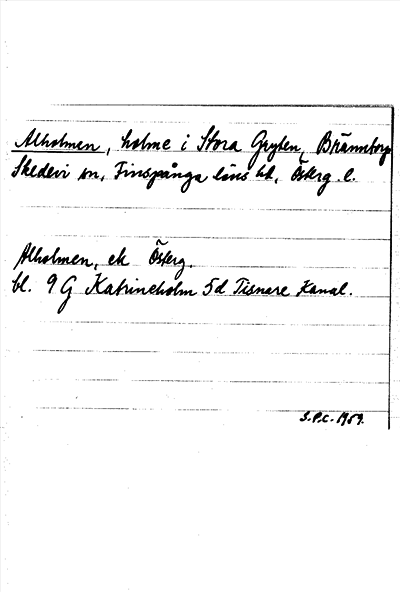 Alholmen, holme i Stora Gryten, Brännborp
Skedevi sn, Finspånga läns hd, Österg. l.
Alholmen, ek Österg.
bl. 9 G Katrineholm 5d Tisnare Kanal.
S.P.C. 1959.